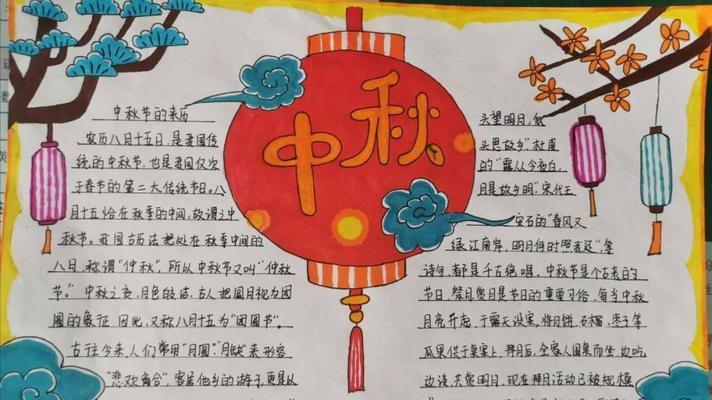 中秋
中秋节的来历
农历八月十五日，是我国传
统的中秋节，也是我国仅次
于春节的第二大传统节日。八
月十五恰在秋季的中间，故谓之中
秋节。我国古历法把处在秋季中间的
八月，称谓“仲秋”，所以中秋节又叫“仲秋
节。”中秋之夜，月色皎洁，古人把圆月视为团
圆的象征，因此，又称八月十五为“团圆节”。
古往今来，人们常用“月圆、月缺”来形容
“悲欢离合”，客居他乡的游子，更是以
头望明月，低
头思故乡”，杜甫
的“露从今夜白，
月是故乡明”，宋代王
安石的“春风又
绿江南岸，明月何时照我还”等
诗句，都是千古绝唱，中秋节是个古老的
节日，祭月赏月是节日的重要习俗，每当中秋
月亮升起，于露天设案，将月饼、石榴、枣子等
瓜果供于桌案上，拜月后，全家人围桌而坐，边吃
边谈，共赏明月，现在拜月活动已被规模